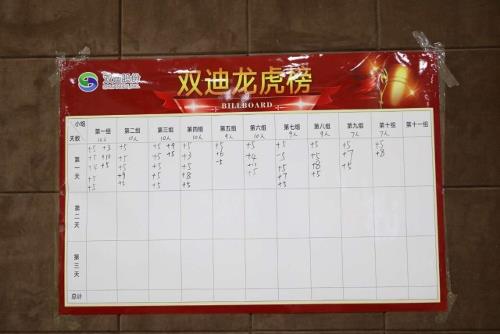 双迪股份
双迪龙虎榜
BILLBOARD
小组 天数 第一组 第二组 第三组 第四组 第五组 第六组 第七组 第八组 第九组 第十组 第十一组
10人 10人 10人 9人 10人 9人 9人 7人 7人
第一天 +5 +3 +5 +5 +9 +5 +5 +5 +5 +5 +5 +5
+5 +10 +5 +5 +5 +3 +6 +4 -5 +5 +7 +8
+5 +5 +5 +5 -5 +8 +5
+5 +9 +5 +8 +5 +7 +5
+5 +5 +5 +5 +5
第二天
第三天
总计